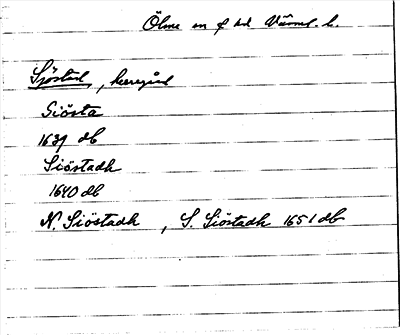 Ölme sn o hd Värml. l.
Sjöstad, herregård
Siösta
1639 db
Siöstadh
1640 db
N. Siöstadh , S. Siöstadh 1651 db